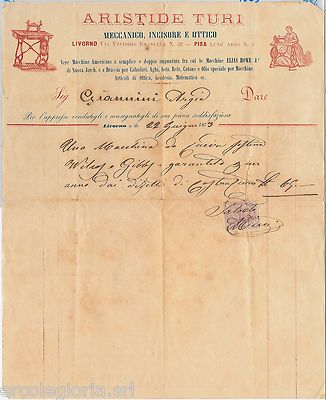 ARISTIDE TURI
MECCANICO, INCISORE E OTTICO
LIVORNO VIA VITTORIO EMANUELE N. 32 — PISA LUNG'ARNO N. 3
Vere Macchine Americane a semplice e doppia impuntura fra cui le Macchine ELIAS HOWE Jr
di Nuova Jorch, e a Braccio per Calzolari, Aghi, Seta, Refe, Cotone e Olio speciale per Macchine.
Articoli di Ottica, Geodesia, Matematica ec.
Sig. Giannini Dare
Per l'appresso vendutogli e consegnatogli di sua piena soddisfazione
Livorno a dì 28 Giugno 1873
Una Macchina da Cucire
Wilcox e Gibbs garantita per
anno dai difetti di Costruzione £ 65 —
Saldato
ercolegloria.srl